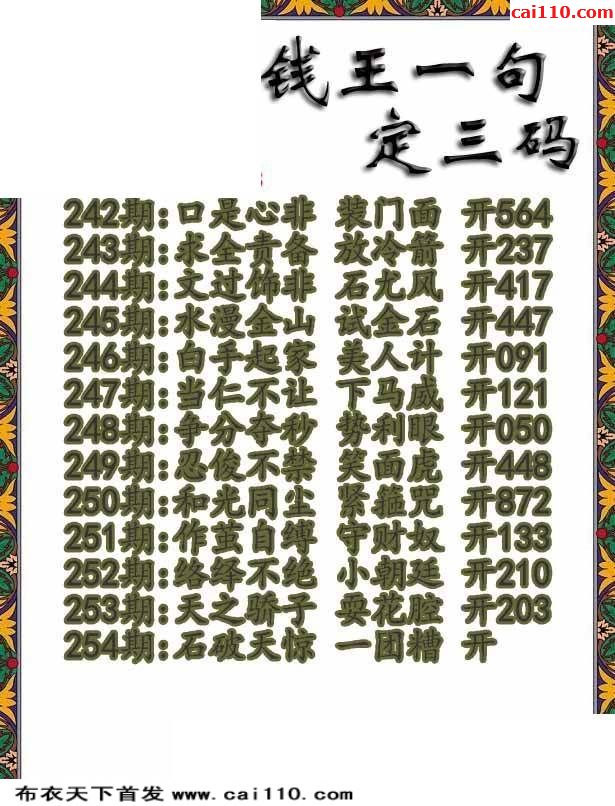 cai110.com
钱王一句
定三码
242期:口是心非 装门面 开564
243期:求全责备 放冷箭 开237
244期:文过饰非 石尤风 开417
245期:水漫金山 试金石 开447
246期:白手起家 美人计 开091
247期:当仁不让 下马威 开121
248期:争分夺秒 势利眼 开050
249期:忍俊不禁 笑面虎 开448
250期:和光同尘 紧箍咒 开872
251期:作茧自缚 守财奴 开133
252期:络绎不绝 小朝廷 开210
253期:天之骄子 耍花腔 开203
254期:石破天惊 一团糟 开
布衣天下首发 www.cai110.com